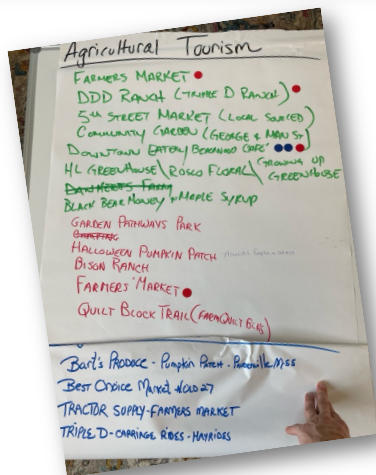 Agricultural Tourism
FARMERS MARKET
DDD RANCH (TRIPLE D RANCH)
5th STREET MARKET (LOCAL SOURCED)
COMMUNITY GARDEN (GEORGE & MAIN ST)
DOWNTOWN EATERY/ CAFE'
HL GREENHOUSE\ ROSCO FLORAL\ (GROWING UP GREENHOUSE
DAN HEETS FARM
BLACK BEAR HONEY & MAPLE SYRUP
GARDEN PATHWAYS PARK
HALLOWEEN PUMPKIN PATCH
BISON RANCH
FARMERS' MARKET
QUILT BLOCK TRAIL (FARM QUILT BLKS)
Bart's PRODUCE - Pumpkin Patch -
Best Choice Market HOLD 27
TRACTOR SUPPLY-FARMERS MARKET
TRIPLE D-CARRINGE RIDES-HAYRIDES